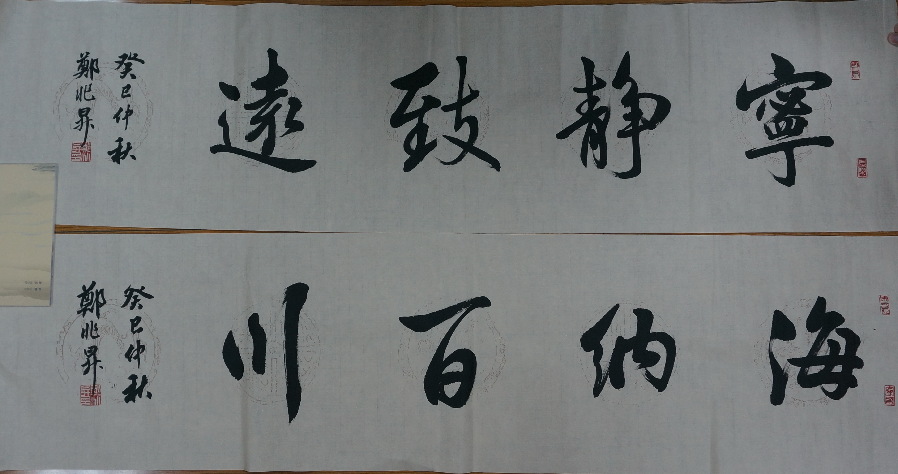 寧靜致遠
癸巳仲秋
鄭兆昇
海納百川
癸巳仲秋
鄭兆昇